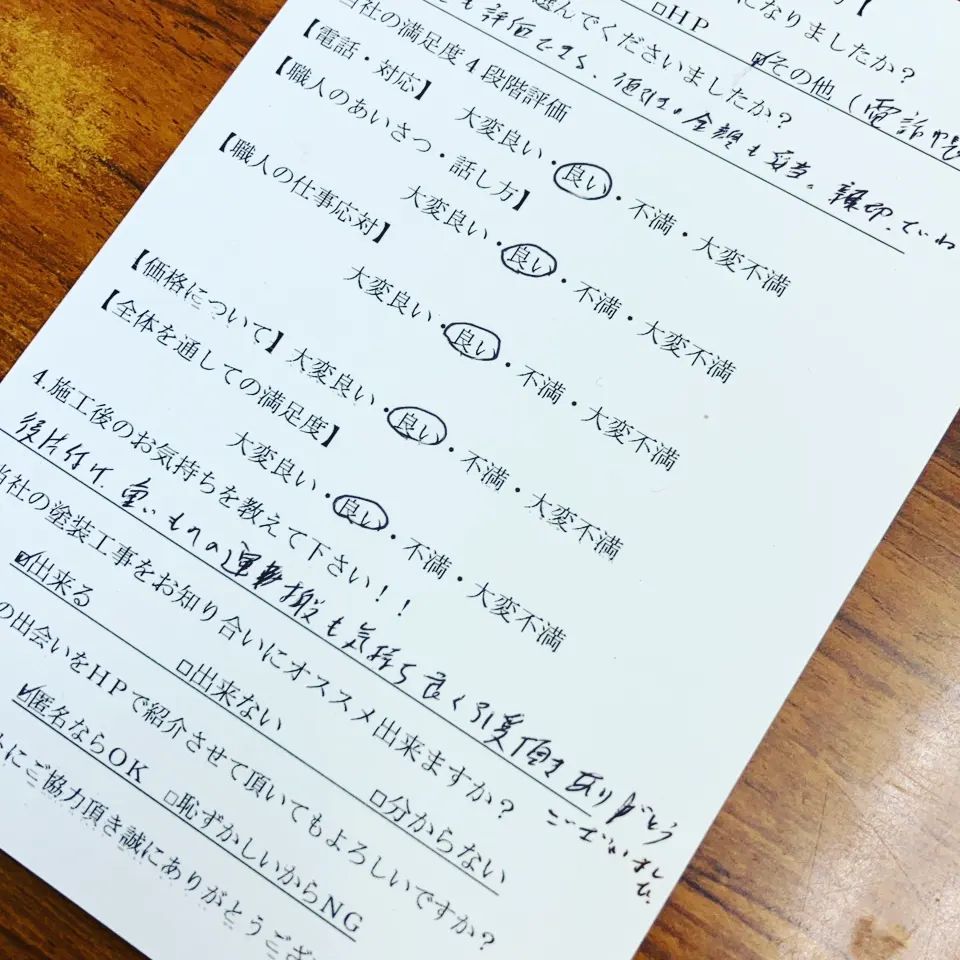 になりましたか?
□HP ☑その他(電話帳
選んでくださいましたか?
も評価できる、値引き。金額も妥当。親切、ていね
当社の満足度4段階評価
【電話・対応】
大変良い・良い・不満・大変不満
【職人のあいさつ・話し方】
大変良い・良い・不満・大変不満
【職人の仕事応対】
大変良い・良い・不満・大変不満
【価格について】大変良い・良い・不満・大変不満
【全体を通しての満足度】
大変良い・良い・不満・大変不満
4.施工後のお気持ちを教えて下さい!!
後片付け、重いものの運搬も気持ち良く引受頂きありがとう
ございました。
当社の塗装工事をお知り合いにオススメ出来ますか?
☑出来る □出来ない □分からない
の出会いをHPで紹介させて頂いてもよろしいですか?
☑匿名ならOK □恥ずかしいからNG
にご協力頂き誠にありがとうござ